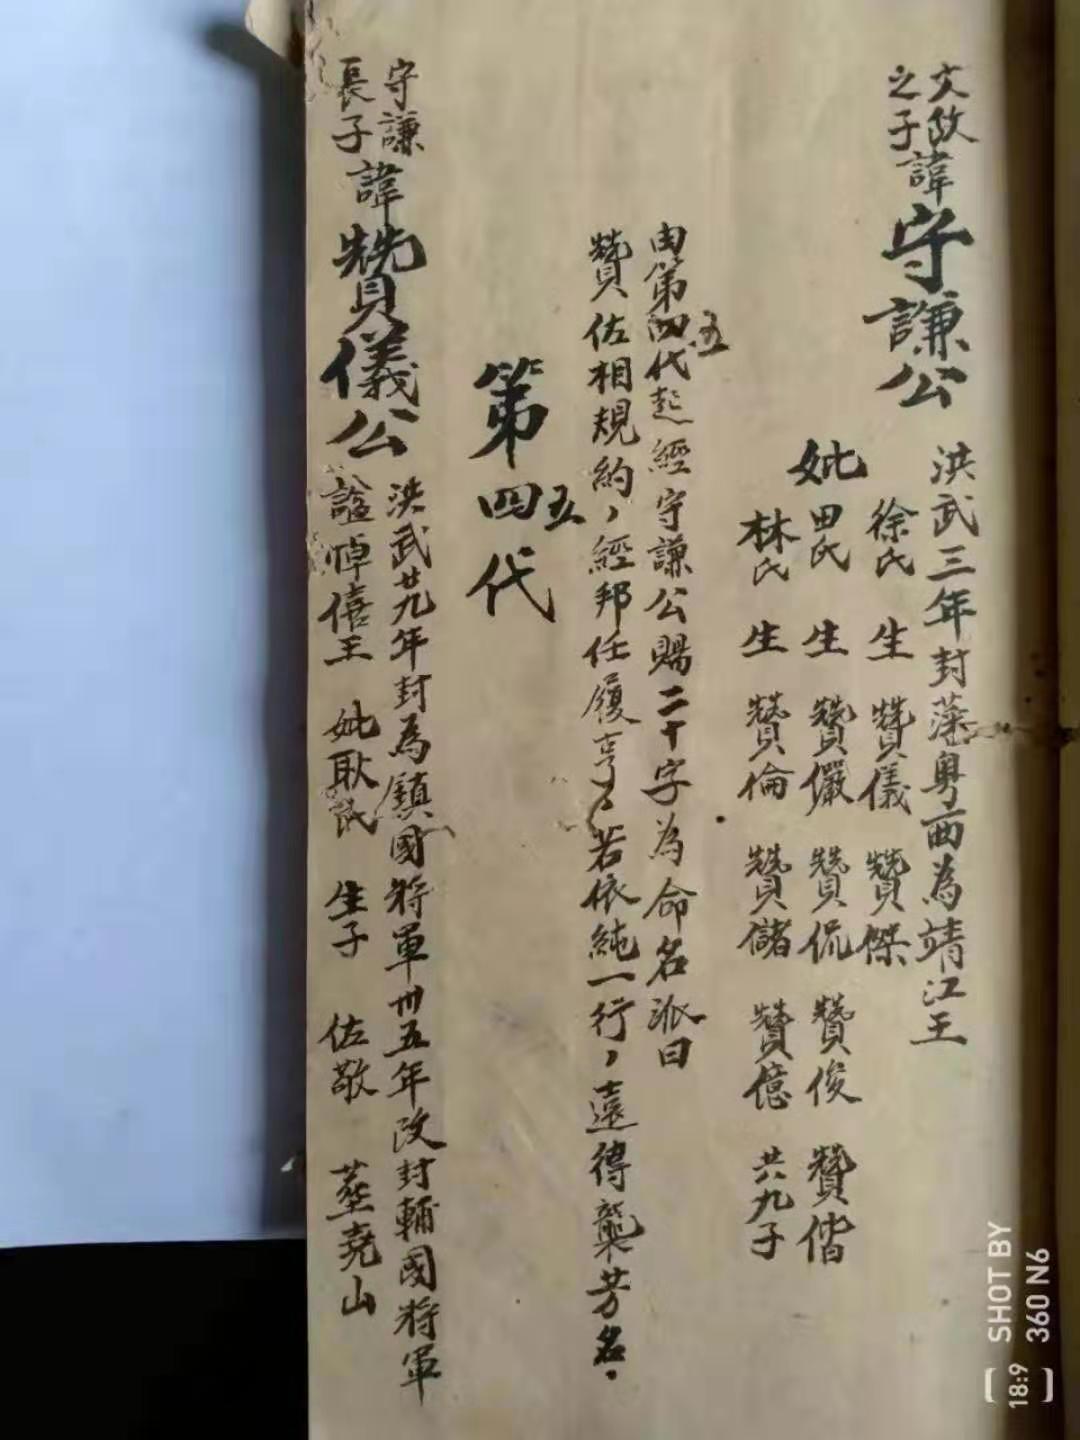 文政
之子
諱守謙公
洪武三年封藩粵西為靖江王
妣
徐氏 生 贊儀 贊傑
田氏 生 贊儼 贊侃 贊俊 贊偕
林氏 生 贊倫 贊儲 贊億 共九子
由第四代起經守謙公賜二十字為命名派曰
五
贊佐相規約，經邦任履亨，若依純一行，遠得襲芳名．
第四代
五
守謙
長子
諱贊儀公
洪武廿九年封為鎮國將軍卅五年改封輔國將軍
謚悼僖王 妣耿氏 生子 佐敬 塟堯山
SHOT BY
360 N6
18:9